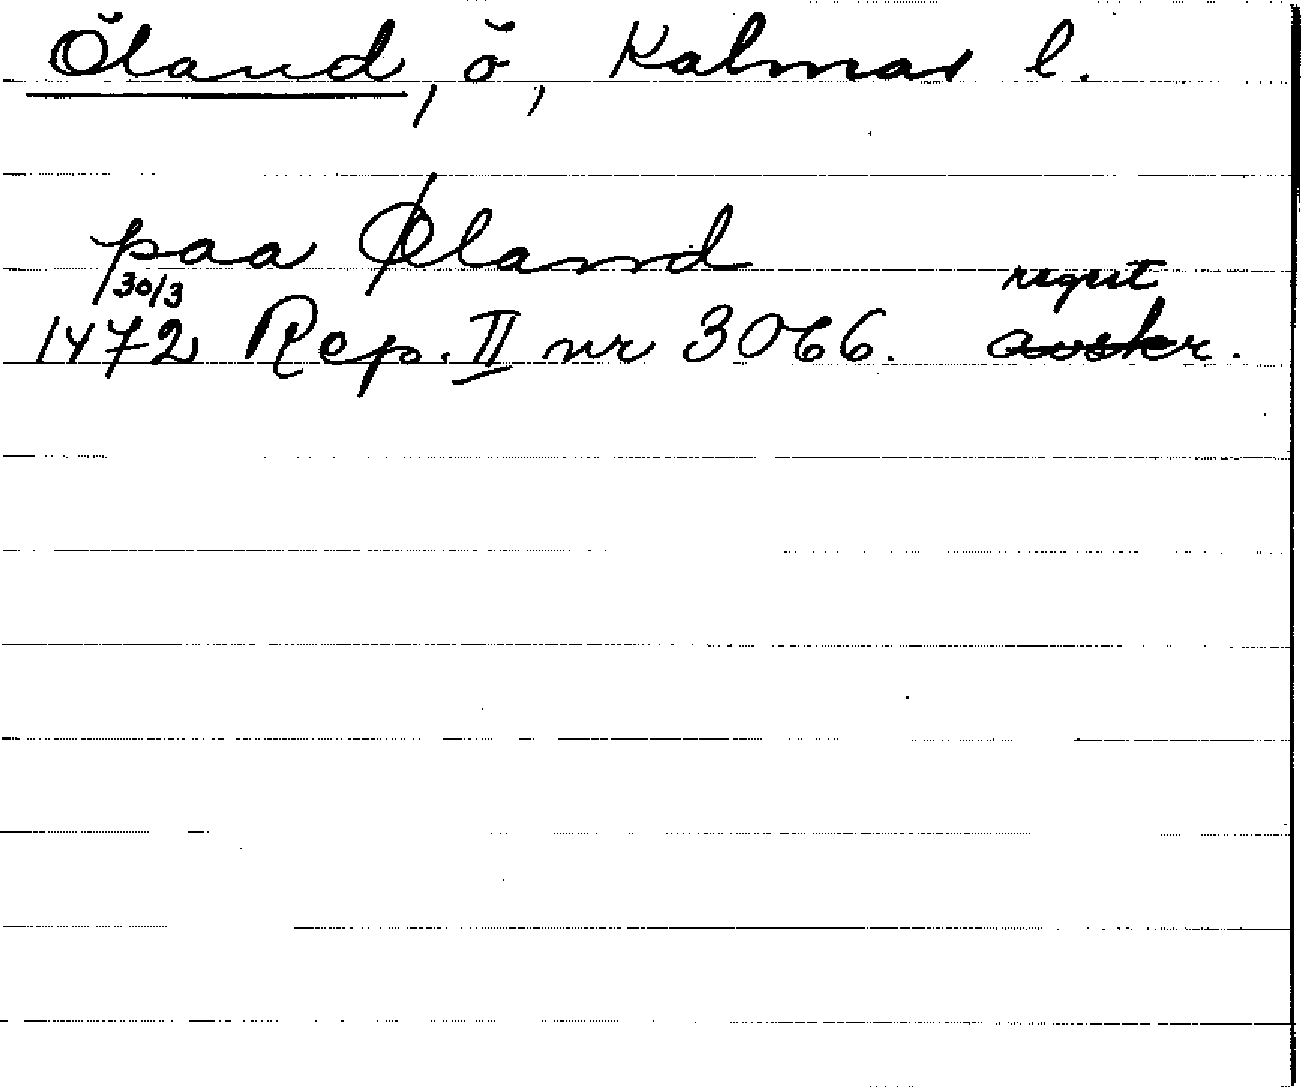 Öland, ö, Kalmar l.
paa Øland
30/3
regest
1472 Rep. II nr 3066. avskr.